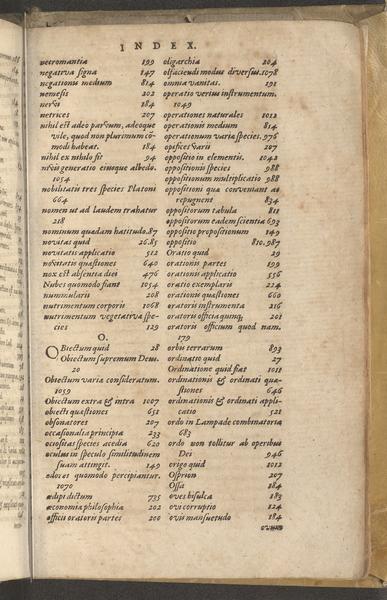 INDEX.
necromantia 199
negativa signa 147
negationis medium 814
nemesis 202
nervi 184
netrices 207
nihil est adeo parvum, adeoque
vile, quod non plurimum cō-
modi habeat. 184
nihil ex nihilo fit 94
nivis generatio eiusque albedo.
1054
nobilitatis tres species Platoni
664
nomen ut ad laudem trahatur
218
nominum quædam hatitudo. 87
novitas quid 26.85
novitatis applicatio 512
novitatis quæstiones 640
nox est absentia diei 476
Nubes quomodo fiant 1054
nummularis 208
nutrimentum corporis 1068
nutrimentum vegetativæ spe-
cies 129
O.
OBiectum quid 28
Obiectum supremum Deus.
20
Obiectum variè consideratum.
1059
Obiectum extra & intra 1007
obiecti quæstiones 651
obsonatores 207
occasionalia principia 233
ociositas species acedia 620
oculus in speculo similitudinem
suam attingit. 149
odores quomodo percipiantur.
1070
œdipi dictum 735
œconomia philosophia 202
officii oratoris partes 200
oligarchia 204
olfaciendi modus diversus. 1078
omnia vanitas. 191
operatio verius instrumentum.
1049
operationes naturales 1012
operationis medium 814
operationum varia species. 976
opifices varii 207
oppositio in elementis. 1042
oppositionis species 988
oppositionum multiplicatio 988
oppositioni quæ conveniant ac
repugnent 834
oppositorum tabula 811
oppositorum eadem scientia 693
oppositio propositionum 149
oppositio 810.987
Oratio quid 29
orationis partes 199
orationis applicatio 556
oratio exemplaris 224
orationis quæstiones 660
oratoris instrumenta 216
oratoris officia quinque 201
oratoris officium quod nam.
179
orbis terrarum 893
ordinatio quid 27
Ordinatione quid fiat 1018
ordinationis & ordinati quæ-
stiones 646
ordinationis & ordinati appli-
catio 521
ordo in Lampade combinatoria
683
ordo non tollitur ab operibus
Dei 946
origo quid 1012
Osprion 207
Ossa 184
oves bisulca 183
ovis corruptio 124
ovis mansuetudo 184